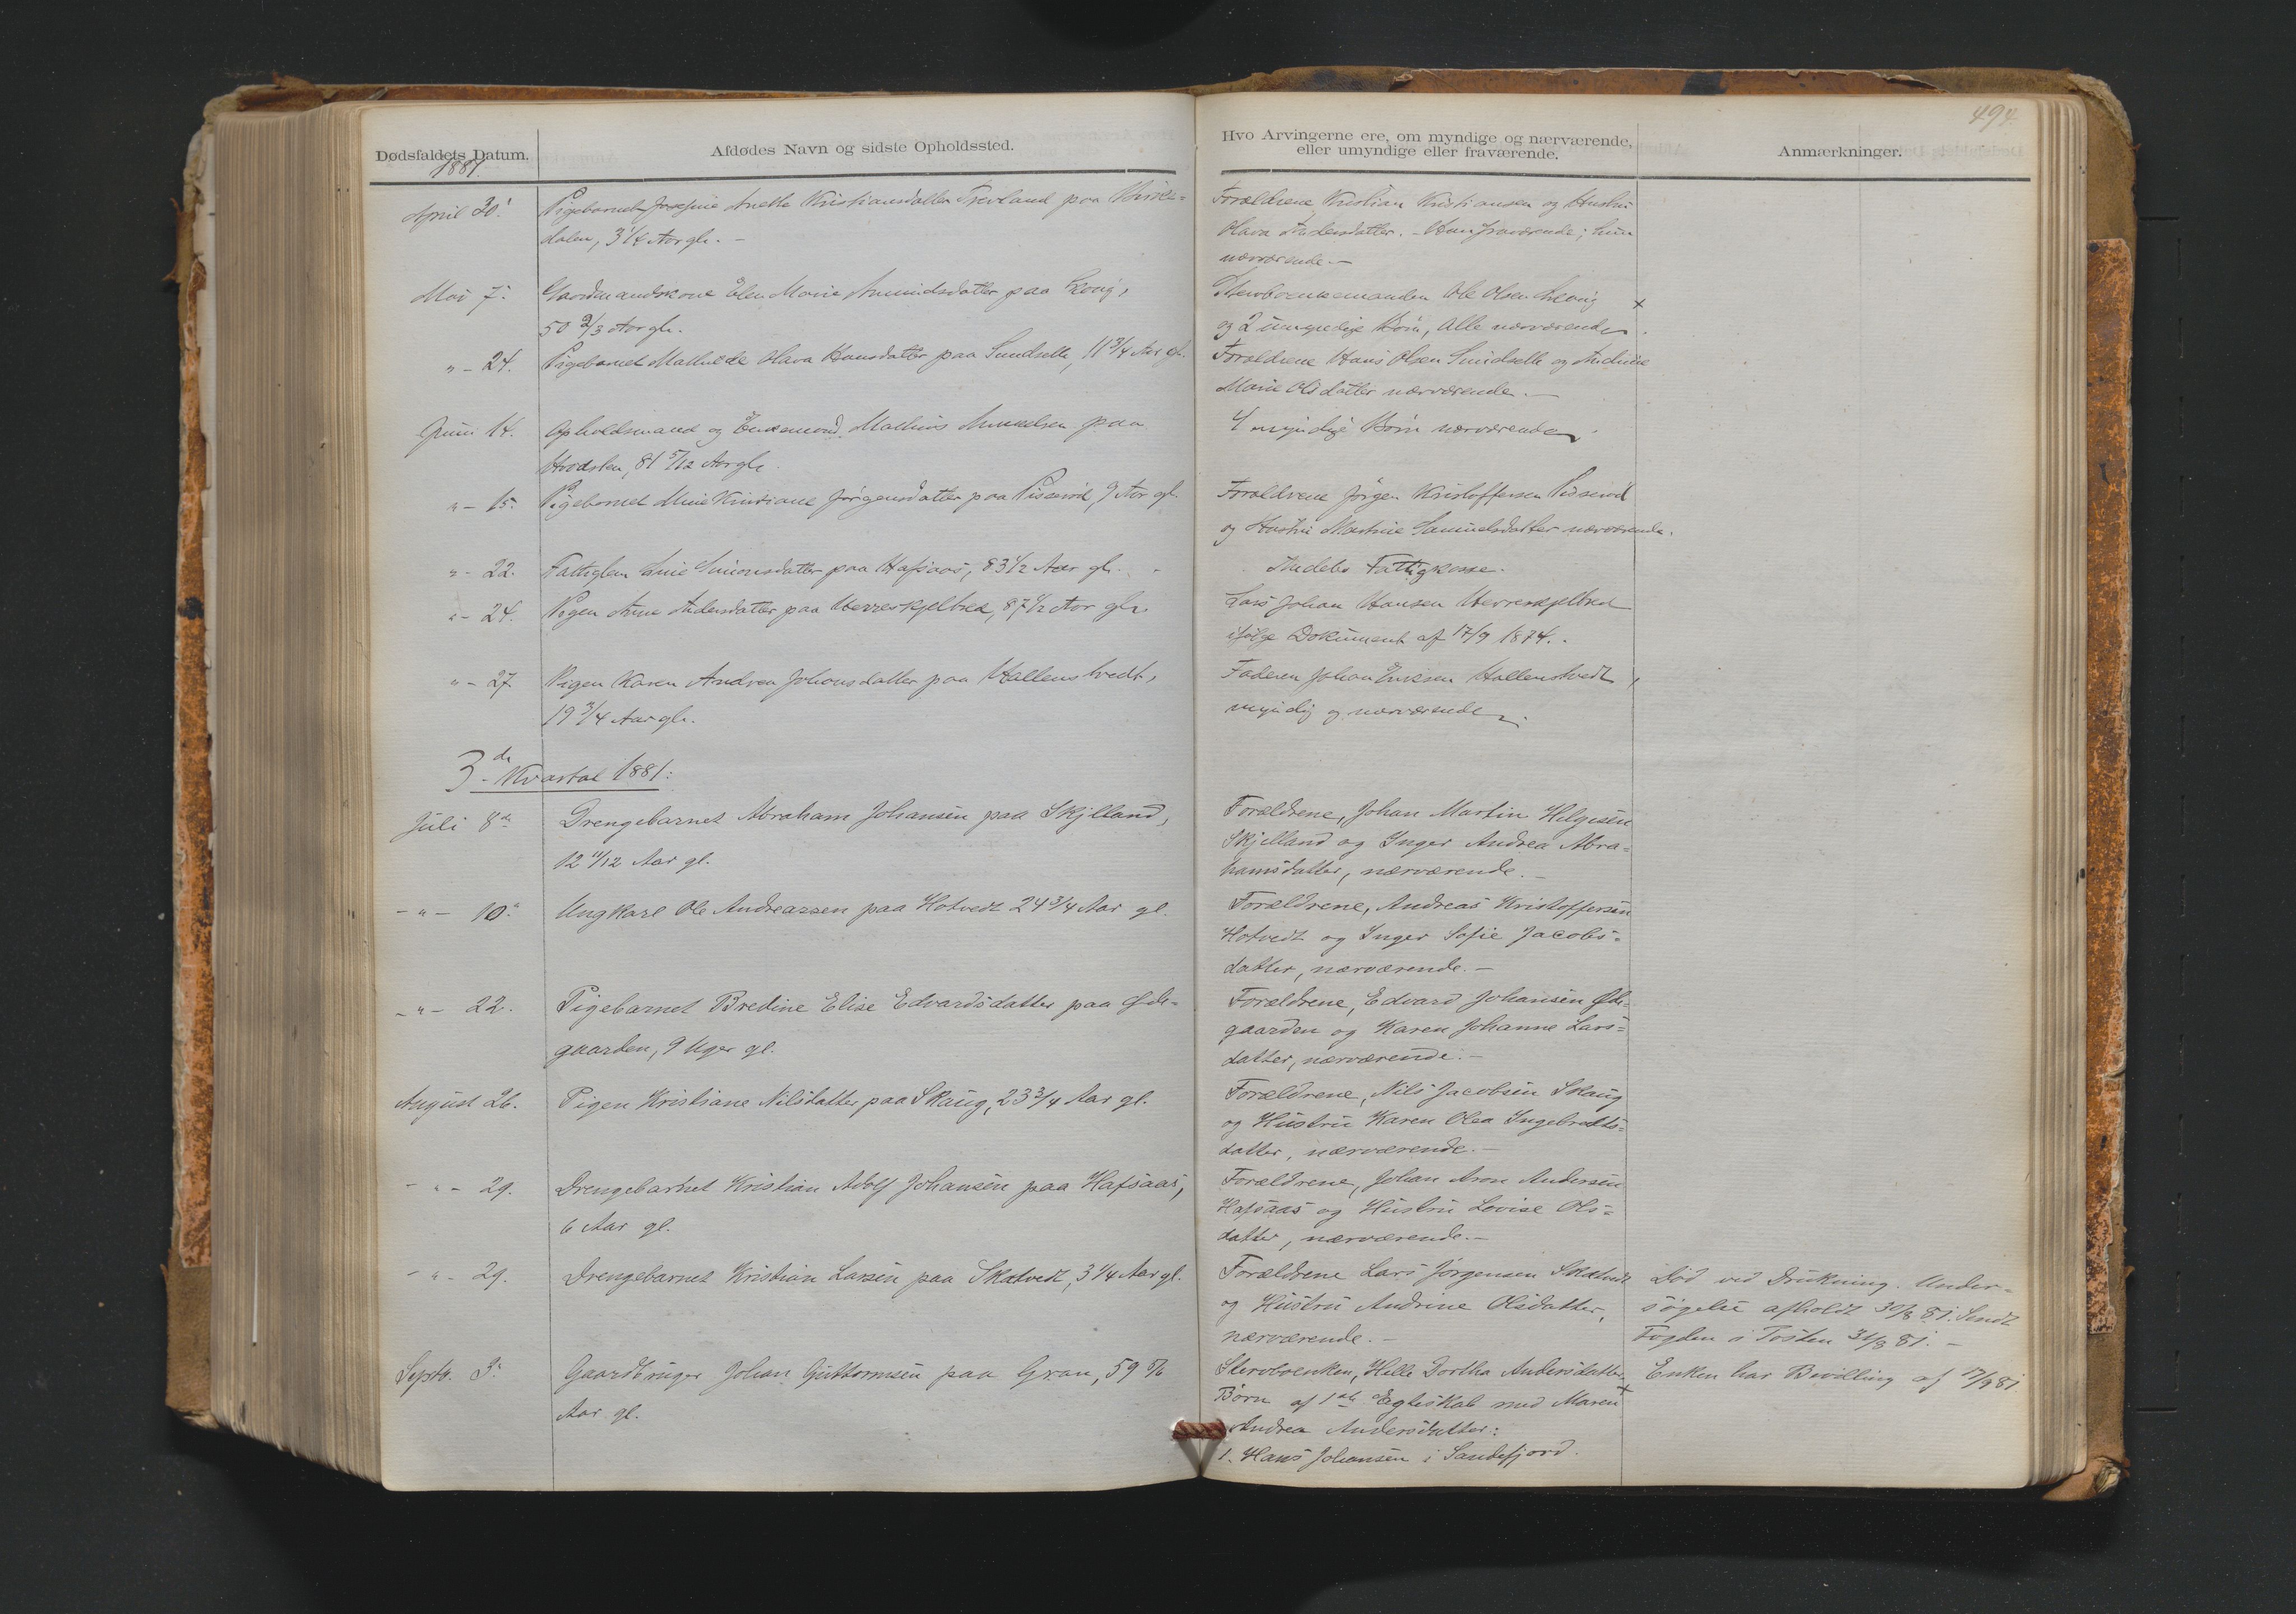 494
Dødsfaldets Datum.
1881.
Afdødes Navn og sidste Opholdssted.
Hvo Arvingerne ere, om myndige og nærværende,
eller umyndige eller fraværende.
Anmærkninger.
April 30. Pigebarnet Josefine Anette Kristiansdatter paa
dalen, 3 1/4 Aar gl. –
Forældrene Kristian Kristiansen og Hustru
Olava Andersdatter. – Han fraværende; hun
nærværende. –
Mai 7. Gaardmandskone Elen Marie Amundsdatter paa
50 2/3 Aar gl.
Stervboenkemanden Ole Olsen
og 2 umyndige Børn, Alle nærværende.
" – 24. Pigebarnet Mathilde Olava Hansdatter paa Sundsette, 11 3/4 Aar gl.
Forældrene Hans Olsen Sundsette og Andrine
Marie Olsdatter nærværende. –
Juni 14. Opholdsmand og Enkemand Mathias paa
81 5/12 Aar gl.
4 myndige Børn nærværende.
" – 15. Pigebarnet Kristiane Jørgensdatter paa Pisserød, 9 Aar gl.
Forældrene Jørgen Kristoffersen Pisserød
og Hustru Martine Samuelsdatter nærværende.
" – 22. Fattiglem Simonsdatter paa Hafsaas, 83 1/2 Aar gl. –
Andebu Fattigkasse.
" – 24. Pigen Anne Andersdatter paa Herreskjelbred, 87 1/2 Aar gl.
Lars Johan Hansen Herreskjelbred
ifølge Dokument af 17/9 1874.
" – 27 Pigen Karen Andrea Johansdatter paa Hallenstvedt,
19 3/4 Aar gl.
Faderen Johan Eriksen Hallenstvedt,
myndig og nærværende.
3de Kvartal 1881:
Juli 8de Drengebarnet Abraham Johansen paa Skjelland,
12 11/12 Aar gl.
Forældrene, Johan Martin Helgesen
Skjelland og Inger Andrea Abra=
hamsdatter, nærværende. –
– " – 10. Ungkarl Ole Andreassen paa Hotvedt 24 3/4 Aar gl.
Forældrene, Andreas Kristoffersen
Hotvedt og Inger Sofie Jacobs=
datter, nærværende. –
– " – 22. Pigebarnet Bredine Elise Edvardsdatter paa Øde=
gaarden, 9 Uger gl.
Forældrene, Edvard Johansen Øde=
gaarden og Karen Johanne Lars=
datter, nærværende. –
August 26. Pigen Kristiane Nilsdatter paa Skaug, 23 3/4 Aar gl.
Forældrene, Nils Jacobsen Skaug
og Hustru Karen Olea Ingebretts=
datter, nærværende. –
– " – 29. Drengebarnet Kristian Adolf Johansen paa Hafsaas,
6 Aar gl.
Forældrene, Johan Aron Andersen
Hafsaas og Hustru Lovise Ols=
datter, nærværende. –
– " – 29. Drengebarnet Kristian Larsen paa Skatvedt, 3 1/4 Aar gl.
Forældrene Lars Jørgensen Skatvedt
og Hustru Andrine Olsdatter,
nærværende. –
Død ved Drukning. Under=
søgelse afholdt 30/8 81. Sendt
Fogden i 31/8 81. –
Septb. 3. Gaardbruger Johan Guttormsen paa Gran, 59 5/6
Aar gl.
Stervboenken, Helle Dorthea Andersdatter.
Børn af 1ste Egteskab med Maren
Andrea Andersdatter:
1. Hans Johansen i Sandefjord.
Enken har Bevilling af 17/9 81